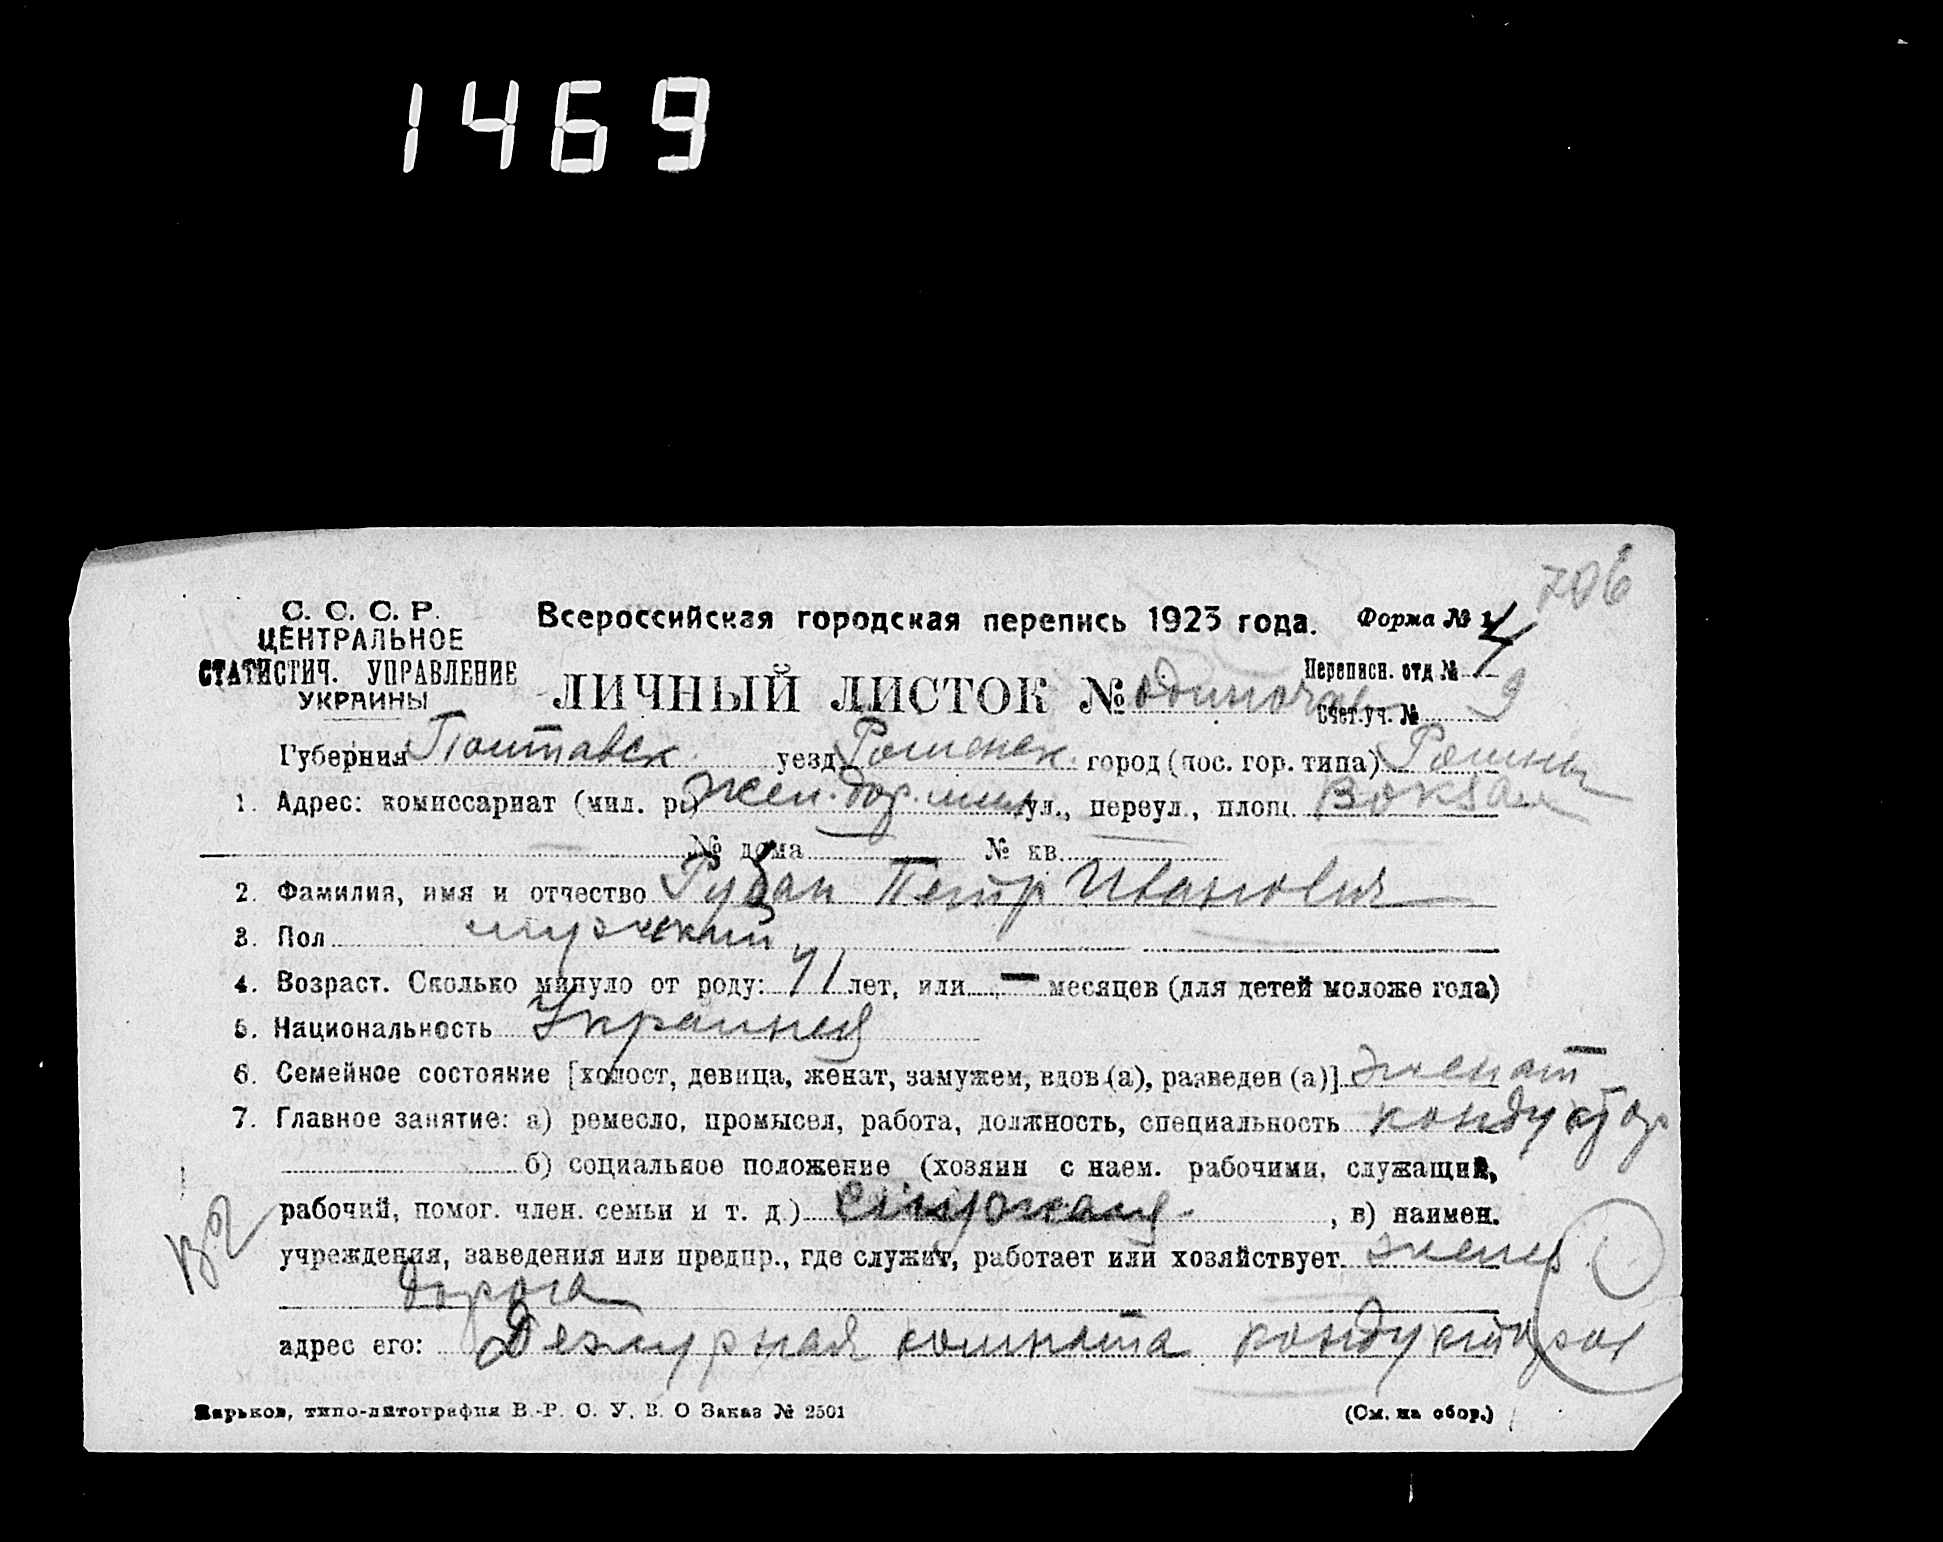 1469
706
С. С. С. Р.
ЦЕНТРАЛЬНОЕ
СТАТИСТИЧ. УПРАВЛЕНИЕ
УКРАИНЫ
Всероссийская городская перепись 1923 года. Форма № 1
Переписн. отд №
ЛИЧНЫЙ ЛИСТОК №
Счет.уч. № 9
Губерния Полтавск. уезд Роменск. город (пос. гор. типа) Ромны
1. Адрес: комиссариат (мил. р.) Жел. дор. мил ул., переул., площ. Вокзал
№ дома № кв.
2. Фамилия, имя и отчество Рубан Петр Иванович
3. Пол мужской
4. Возраст. Сколько минуло от роду: 41 лет, или — месяцев (для детей моложе года)
5. Национальность Украинец
6. Семейное состояние [холост, девица, женат, замужем, вдов (а), разведен (а)] женат
7. Главное занятие: а) ремесло, промысел, работа, должность, специальность кондуктор
б) социальное положение (хозяин с наем. рабочими, служащий,
рабочий, помог. член. семьи и т. д.) , в) наимен.
учреждения, заведения или предпр., где служит, работает или хозяйствует желез
дорога
адрес его: Дежурная комната кондукторов
Харьков, типо-литография В.-Р. С. У. В. О Заказ № 2501
(См. на обор.)